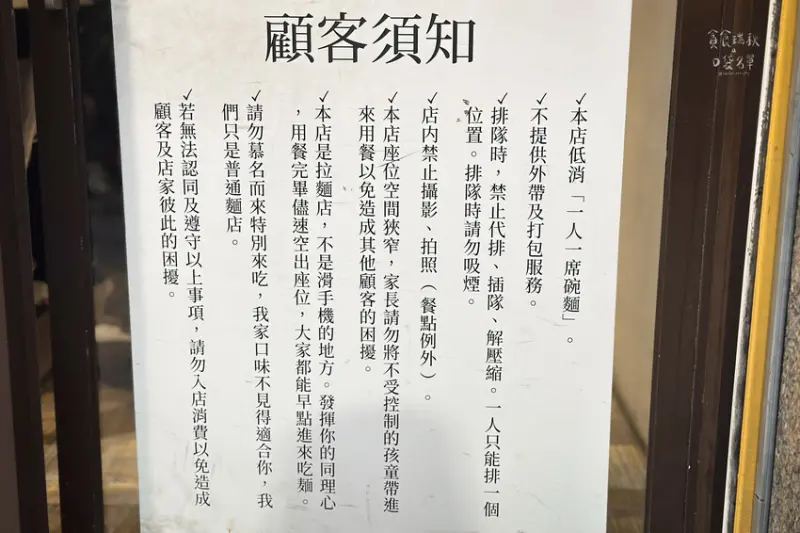 顧客須知
✓本店低消「一人一席碗麵」。
✓不提供外帶及打包服務。
✓排隊時，禁止代排、插隊、解壓縮。一人只能排一個
位置。排隊時請勿吸煙。
✓店內禁止攝影、拍照（餐點例外）。
✓本店座位空間狹窄，家長請勿將不受控制的孩童帶進
來用餐以免造成其他顧客的困擾。
✓本店是拉麵店，不是滑手機的地方。發揮你的同理心
，用餐完畢儘速空出座位，大家都能早點進來吃麵。
✓請勿慕名而來特別來吃，我家口味不見得適合你，我
們只是普通麵店。
✓若無法認同及遵守以上事項，請勿入店消費以免造成
顧客及店家彼此的困擾。
貪食瑞秋
口袋名單